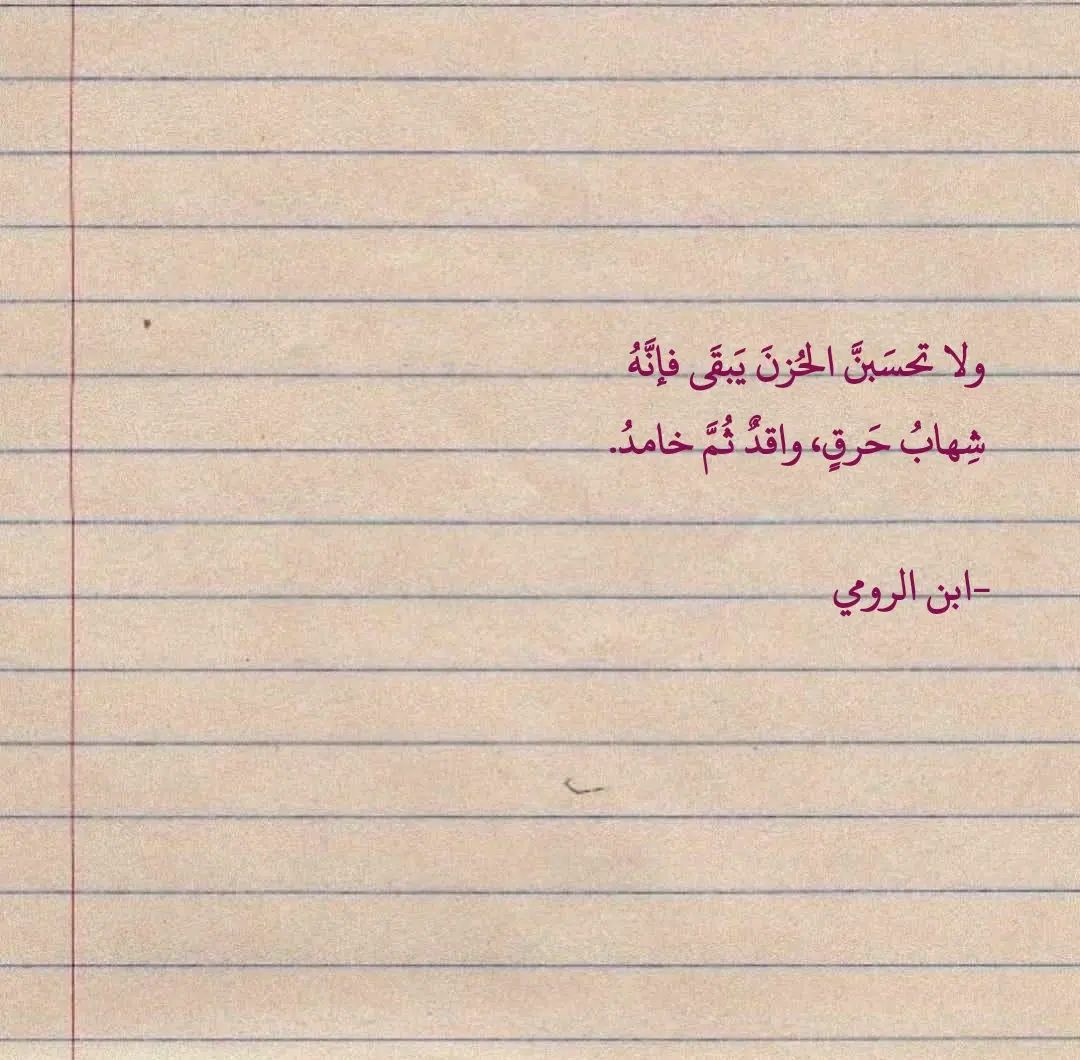 ولا تحسَبنَّ الحُزنَ يَبقَى فإنَّهُ
شِهابُ حَرقٍ، واقدٌ ثُمَّ خامدُ.
-ابن الرومي